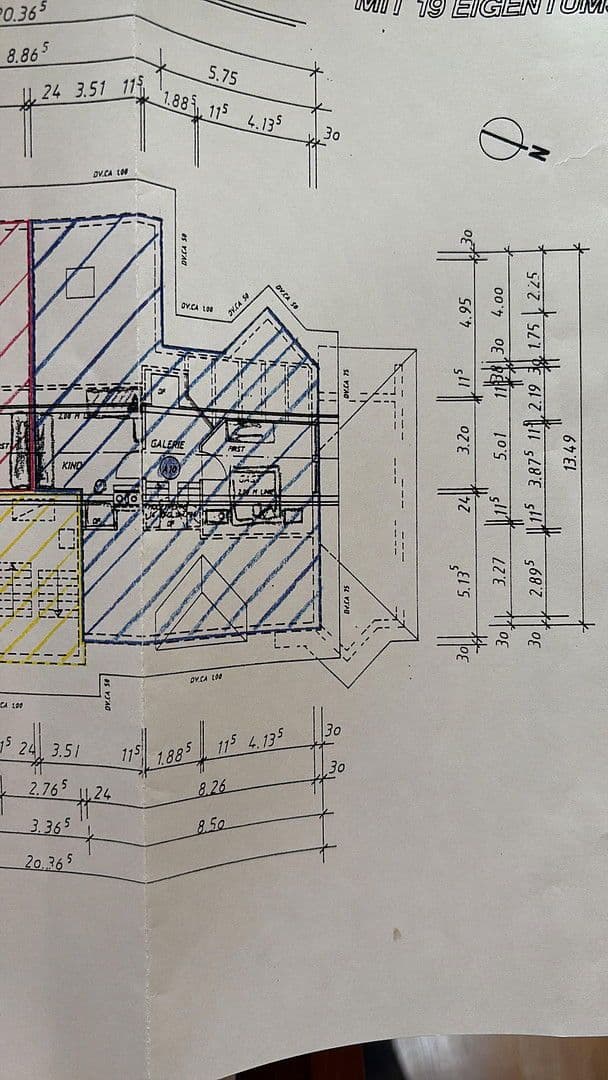 MIT 19 EIGENTUM
20.36⁵
8.86⁵
5.75
24 3.51 11⁵ 1.88⁵ 11⁵ 4.13⁵ 30
N
DV.CA 1.00
DV.CA 50
DV.CA 1.00
DV.CA 50
DV.CA 50
DV.CA 75
GALERIE
FIRST
KIND
A10
DF
DF
DF
DV.CA 75
DV.CA 1.00
DV.CA 50
CA 1.00
30 4.95 11⁵ 3.20 24 5.13⁵ 30
4.00 30 5.01 11⁵ 3.27 30
2.25 1.75 2.19 11⁵ 3.87⁵ 11⁵ 2.89⁵ 30
13.49
24 3.51 11⁵ 1.88⁵ 11⁵ 4.13⁵ 30
2.76⁵ 24 8.26 30
3.36⁵ 8.50
20.36⁵